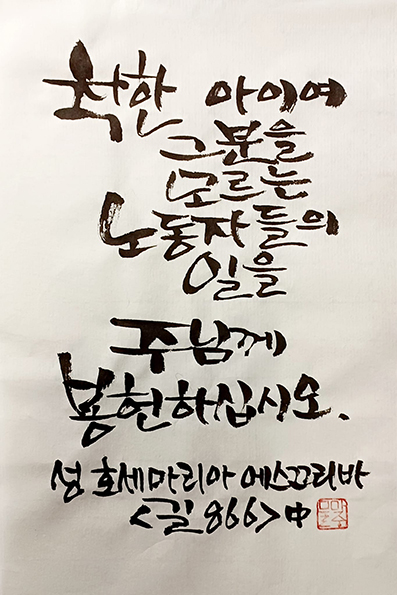 착한 아이여
그분을
모르는
노동자들의
일을
주님께
봉헌하십시오.
성 호세마리아 에스끄리바
<길 866> 中